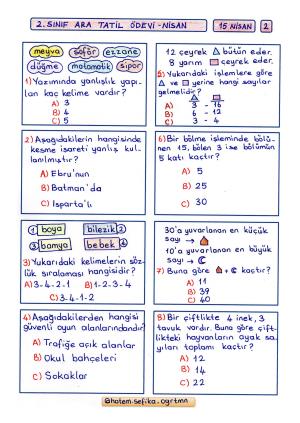 2. SINIF ARA TATİL ÖDEVİ -NİSAN
15 NİSAN
2
meyva
şöför
ezzane
düğme
matamatik
sipor
1) Yazımında yanlışlık yapı-
lan kaç kelime vardır?
A) 3
B) 4
C) 5
2) Aşağıdakilerin hangisinde
kesme işareti yanlış kul-
lanılmıştır?
A) Ebru'nun
B) Batman'da
C) Isparta'lı
1 boya
bilezik 2
3 bamya
bebek 4
3) Yukarıdaki kelimelerin söz-
lük sıralaması hangisidir?
A) 3-4-2-1 B) 1-2-3-4
C) 3-4-1-2
4) Aşağıdakilerden hangisi
güvenli oyun alanlarındandır?
A) Trafiğe açık alanlar
B) Okul bahçeleri
C) Sokaklar
12 çeyrek bütün eder.
8 yarım çeyrek eder.
5) Yukarıdaki işlemlere göre
ve yerine hangi sayılar
gelmelidir?
A) 3 - 16
B) 6 - 12
C) 3 - 4
6) Bir bölme işleminde bölü-
nen 15, bölen 3 ise bölümün
5 katı kaçtır?
A) 5
B) 25
C) 30
30'a yuvarlanan en küçük
sayı →
10'a yuvarlanan en büyük
sayı →
7) Buna göre + kaçtır?
A) 11
B) 39
C) 40
8) Bir çiftlikte 4 inek, 3
tavuk vardır. Buna göre çift-
likteki hayvanların ayak sa-
yıları toplamı kaçtır?
A) 12
B) 14
C) 22
@hatem.sefika_ogrtmn